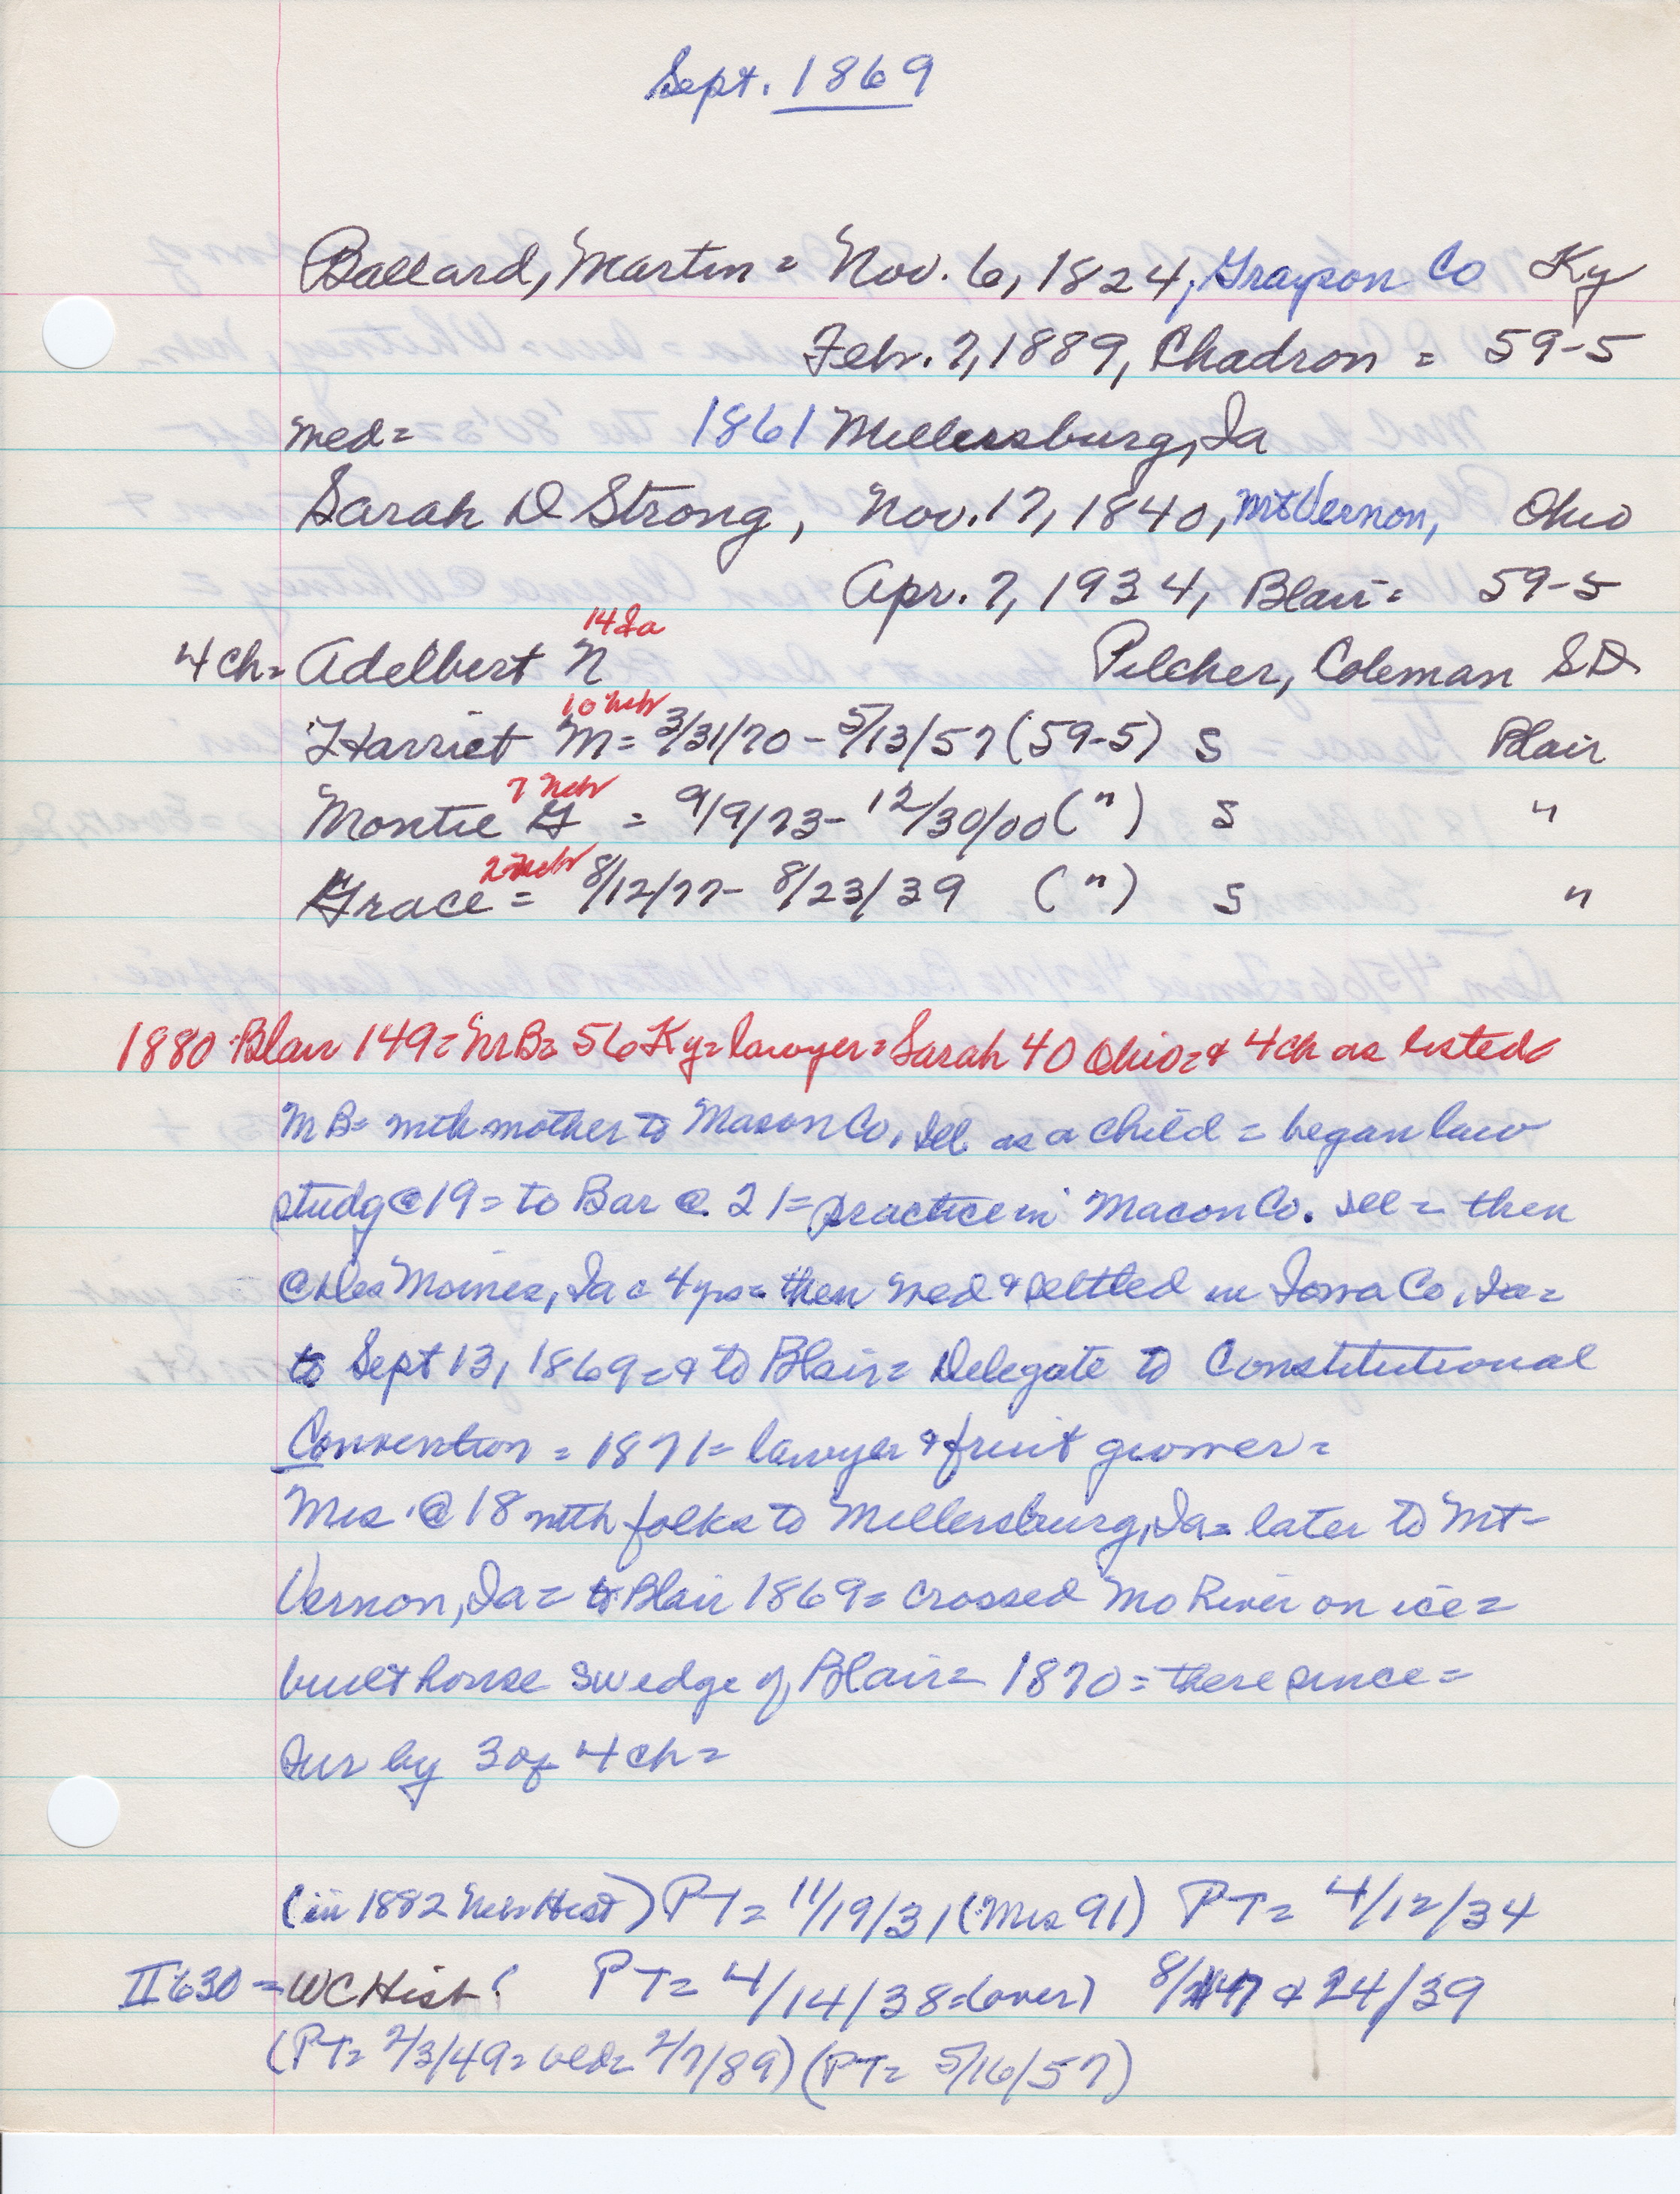 Sept. 1869
Ballard, Martin = Nov. 6, 1824, Grayson Co Ky
Febr. 7, 1889, Chadron = 59-5
med = 1861 Millersburg, Ia
Sarah D Strong, Nov. 17, 1840, Mt Vernon, Ohio
Apr. 7, 1934, Blair = 59-5
14 Ia
4 ch = Adelbert N Pilcher, Coleman SD
10 Nebr
Harriet M = 3/31/70 - 5/13/57 (59-5) S Blair
7 Nebr
Montie G = 9/9/73 - 12/30/00 (") S "
2 Nebr
Grace = 8/12/77 - 8/23/39 (") S "
1880 Blair 149 = MB = 56 Ky = lawyer = Sarah 40 Ohio = & 4 ch as listed =
MB = with mother to Macon Co, Ill as a child = began law
study @ 19 = to Bar @ 21 = practice in Macon Co. Ill = then
@ Des Moines, Ia c 4 yrs = then med & settled in Iowa Co, Ia =
to Sept 13, 1869 = & to Blair = Delegate to Constitutional
Convention = 1871 = lawyer & fruit grower =
Mrs. @ 18 with folks to Millersburg, Ia = later to Mt -
Vernon, Ia = to Blair 1869 = crossed Mo River on ice =
built house SW edge of Blair = 1870 = there since =
Sur by 3 of 4 ch =
(in 1882 Nebr Hist) PT = 11/19/31 (Mrs 91) PT = 4/12/34
II 630 = WC Hist. PT = 4/14/38 = (over) 8/17 & 24/39
(PT = 2/3/49 = 2/7/89) (PT = 5/16/57)